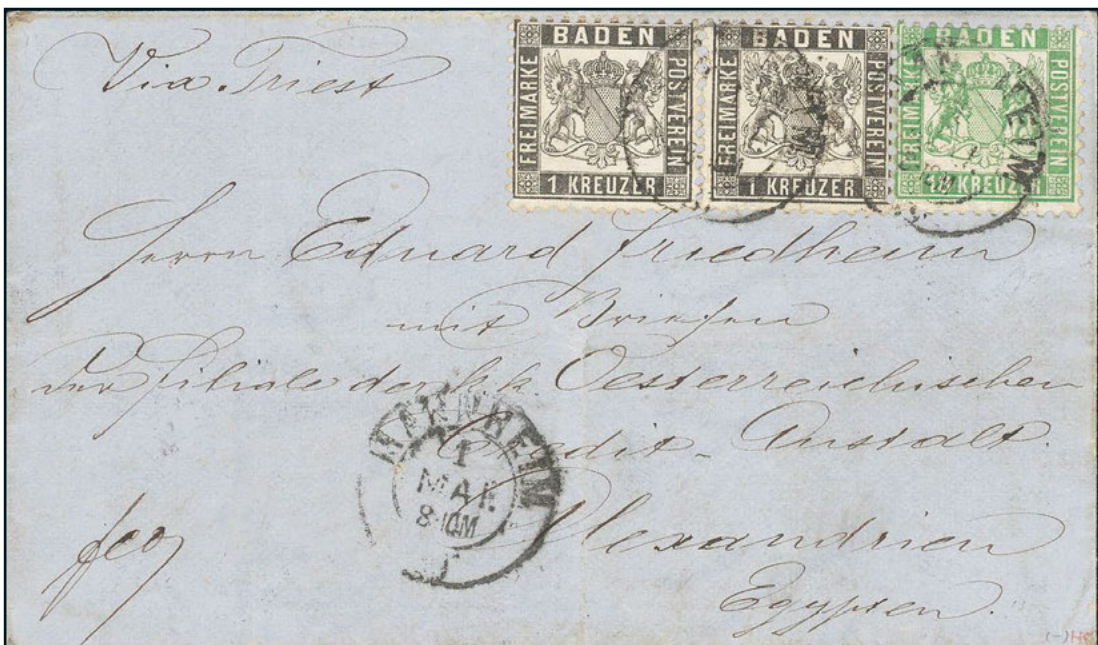 Via Triest
BADEN
FREIMARKE
POSTVEREIN
1 KREUZER
BADEN
FREIMARKE
POSTVEREIN
1 KREUZER
BADEN
FREIMARKE
POSTVEREIN
KREUZER
Herrn Eduard Friedheim
mit Briefen
der Filiale der k k Oesterreichischen
Credit-Anstalt.
MANNHEIM
1
MAI
8-10M
fco
Alexandrien
Egypten.
(-) HS